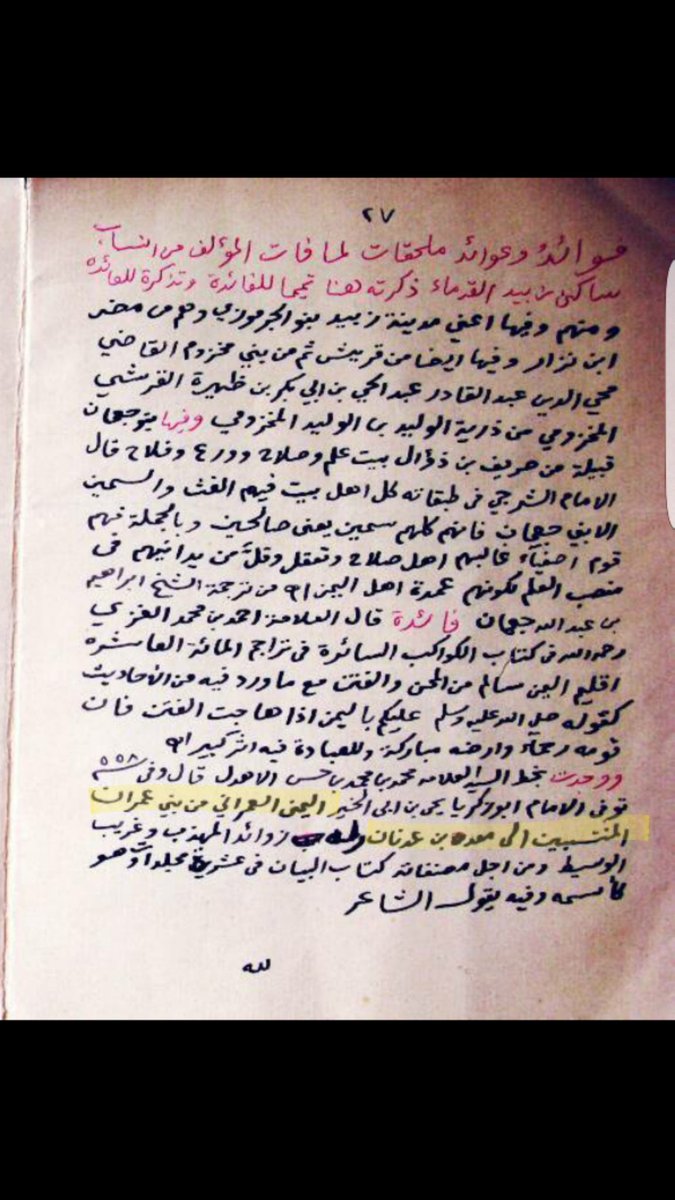 ٢٧
فوائدُ وعوائد ملحقات لما فات المؤلف من انساب
ساكني زبيد القدماء ذكرته هنا تتميما للفائدة وتذكرة للفائده
ومنهم وفيها اعني مدينة زبيد بنو الجرموزي وهم من مضر
ابن نزار وفيها ايضا من قريش ثم من بني مخزوم القاضي
محيي الدين عبد القادر عبد الحي بن ابي بكر بن ظهيرة القرشي
المخزومي من ذرية الوليد بن الوليد المخزومي وفيها بنو جعمان
قبيلة من صريف بن ذؤال بيت علم وصلاح وورع وفلاح قال
الامام الشرجي في طبقاته كل اهل بيت فيهم الغث والسمين
الا بني جعمان فانهم كلهم سمين يعني صالحين وبالجملة فهم
قوم اصفياء غالبهم اهل صلاح وتعقل وقلّ من يدانيهم في
منصب العلم لكونهم عمدة اهل اليمن اهـ من ترجمة الشيخ ابراهيم
بن عبد الله جعمان فائدة قال العلامة احمد بن محمد الغزي
رحمه الله في كتاب الكواكب السائرة في تراجم المائة العاشره
اقليم اليمن سالم من المحن والفتن مع ما ورد فيه من الأحاديث
كقوله صلى الله عليه وسلم عليكم باليمن اذا هاجت الفتن فان
قومه رحماء وارضه مباركة وللعبادة فيه اثر كبير اهـ
ووجدت بخط السيد العلامه محمد بن محمد بن حسن الاهدل قال وفي سنة ٥٥٨
توفي الامام ابو زكريا يحيى بن ابي الخير اليمني العمراني من بني عمران
المنتسبين الى معد بن عدنان زوائد المهذب وغريب
الوسيط ومن اجل مصنفاته كتاب البيان في عشرة مجلدات وهو
كأسمه وفيه يقول الشاعر
لله